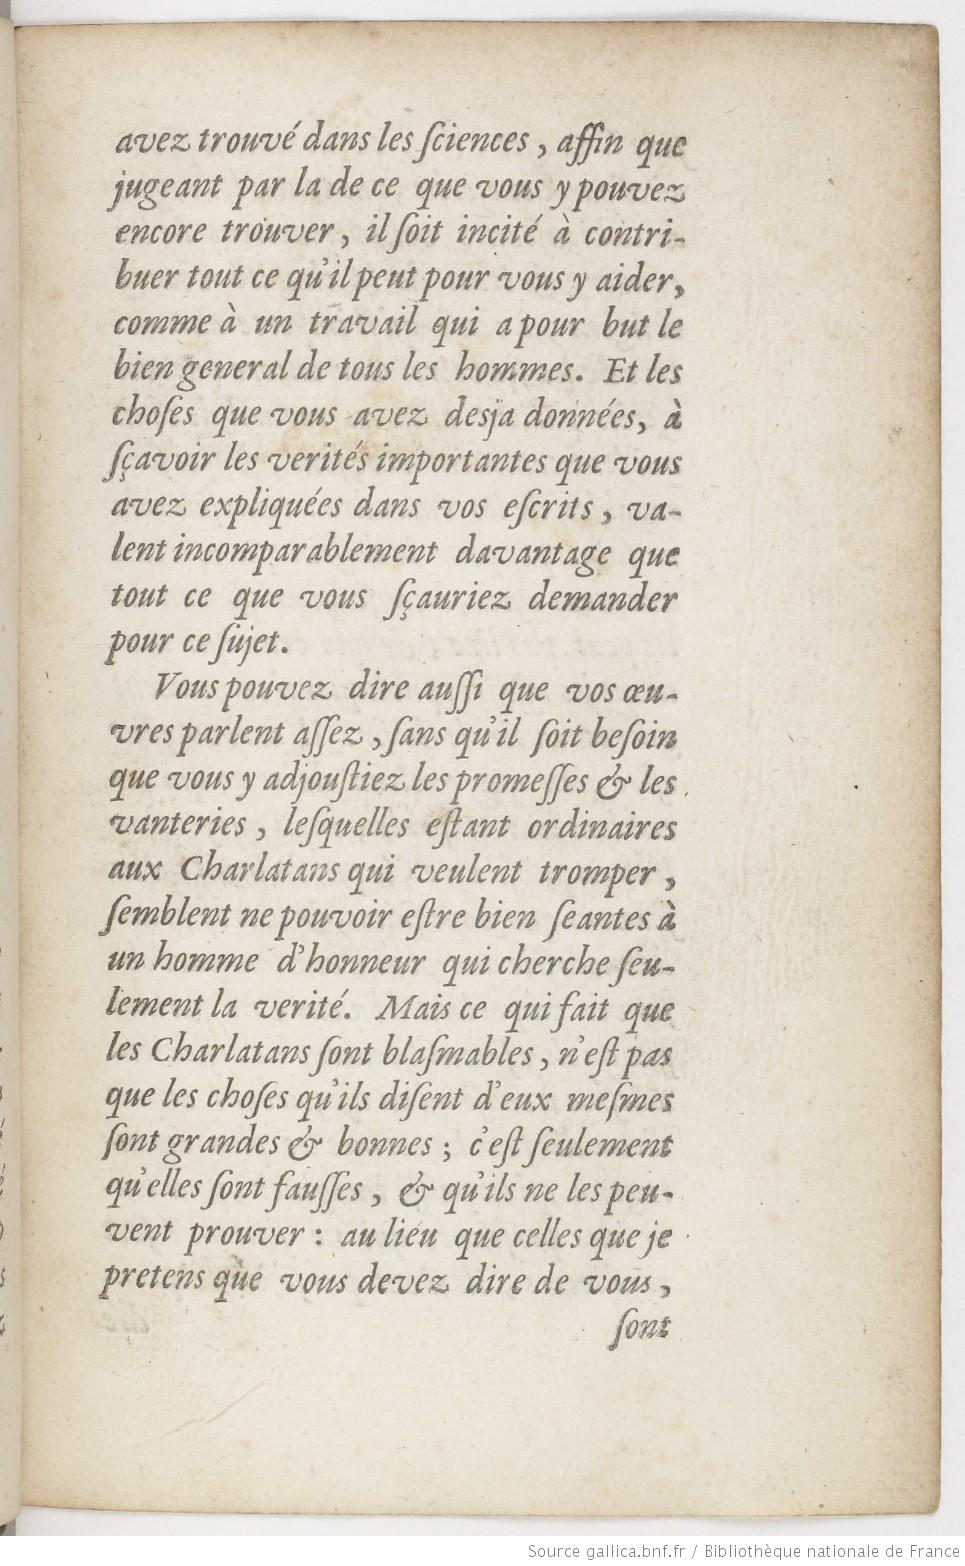 avez trouvé dans les ſciences, affin que
jugeant par la de ce que vous y pouvez
encore trouver, il ſoit incité à contri-
buer tout ce qu'il peut pour vous y aider,
comme à un travail qui a pour but le
bien general de tous les hommes. Et les
choſes que vous avez desja données, à
ſçavoir les verités importantes que vous
avez expliquées dans vos eſcrits, va-
lent incomparablement davantage que
tout ce que vous ſçauriez demander
pour ce ſujet.
Vous pouvez dire auſſi que vos œu-
vres parlent aſſez, ſans qu'il ſoit beſoin
que vous y adjouſtiez les promeſſes & les
vanteries, leſquelles eſtant ordinaires
aux Charlatans qui veulent tromper,
ſemblent ne pouvoir eſtre bien ſeantes à
un homme d'honneur qui cherche ſeu-
lement la verité. Mais ce qui fait que
les Charlatans ſont blaſmables, n'eſt pas
que les choſes qu'ils diſent d'eux meſmes
ſont grandes & bonnes; c'eſt ſeulement
qu'elles ſont fauſſes, & qu'ils ne les peu-
vent prouver: au lieu que celles que je
pretens que vous devez dire de vous,
ſont
Source gallica.bnf.fr / Bibliothèque nationale de France